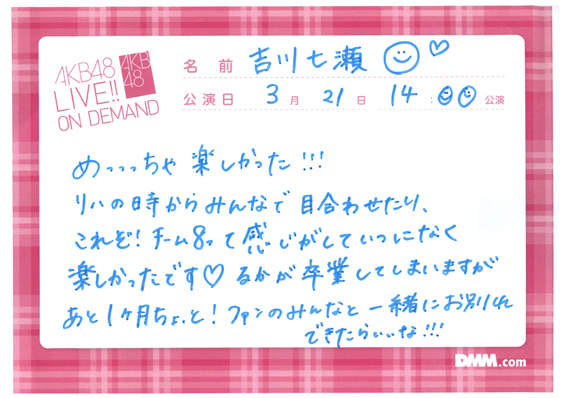 AKB48
LIVE!!
ON DEMAND
AKB
48
名 前 吉川七瀬
公演日 3月 21日 14:00公演
めっっっちゃ 楽しかった!!!
リハの時からみんなで 目合わせたり、
これぞ!チーム8って感じがしていつになく
楽しかったです♡ るかが卒業してしまいますが
あと1ヶ月ちょっと!ファンのみんなと一緒にお別れ
できたらいいな!!!
DMM.com